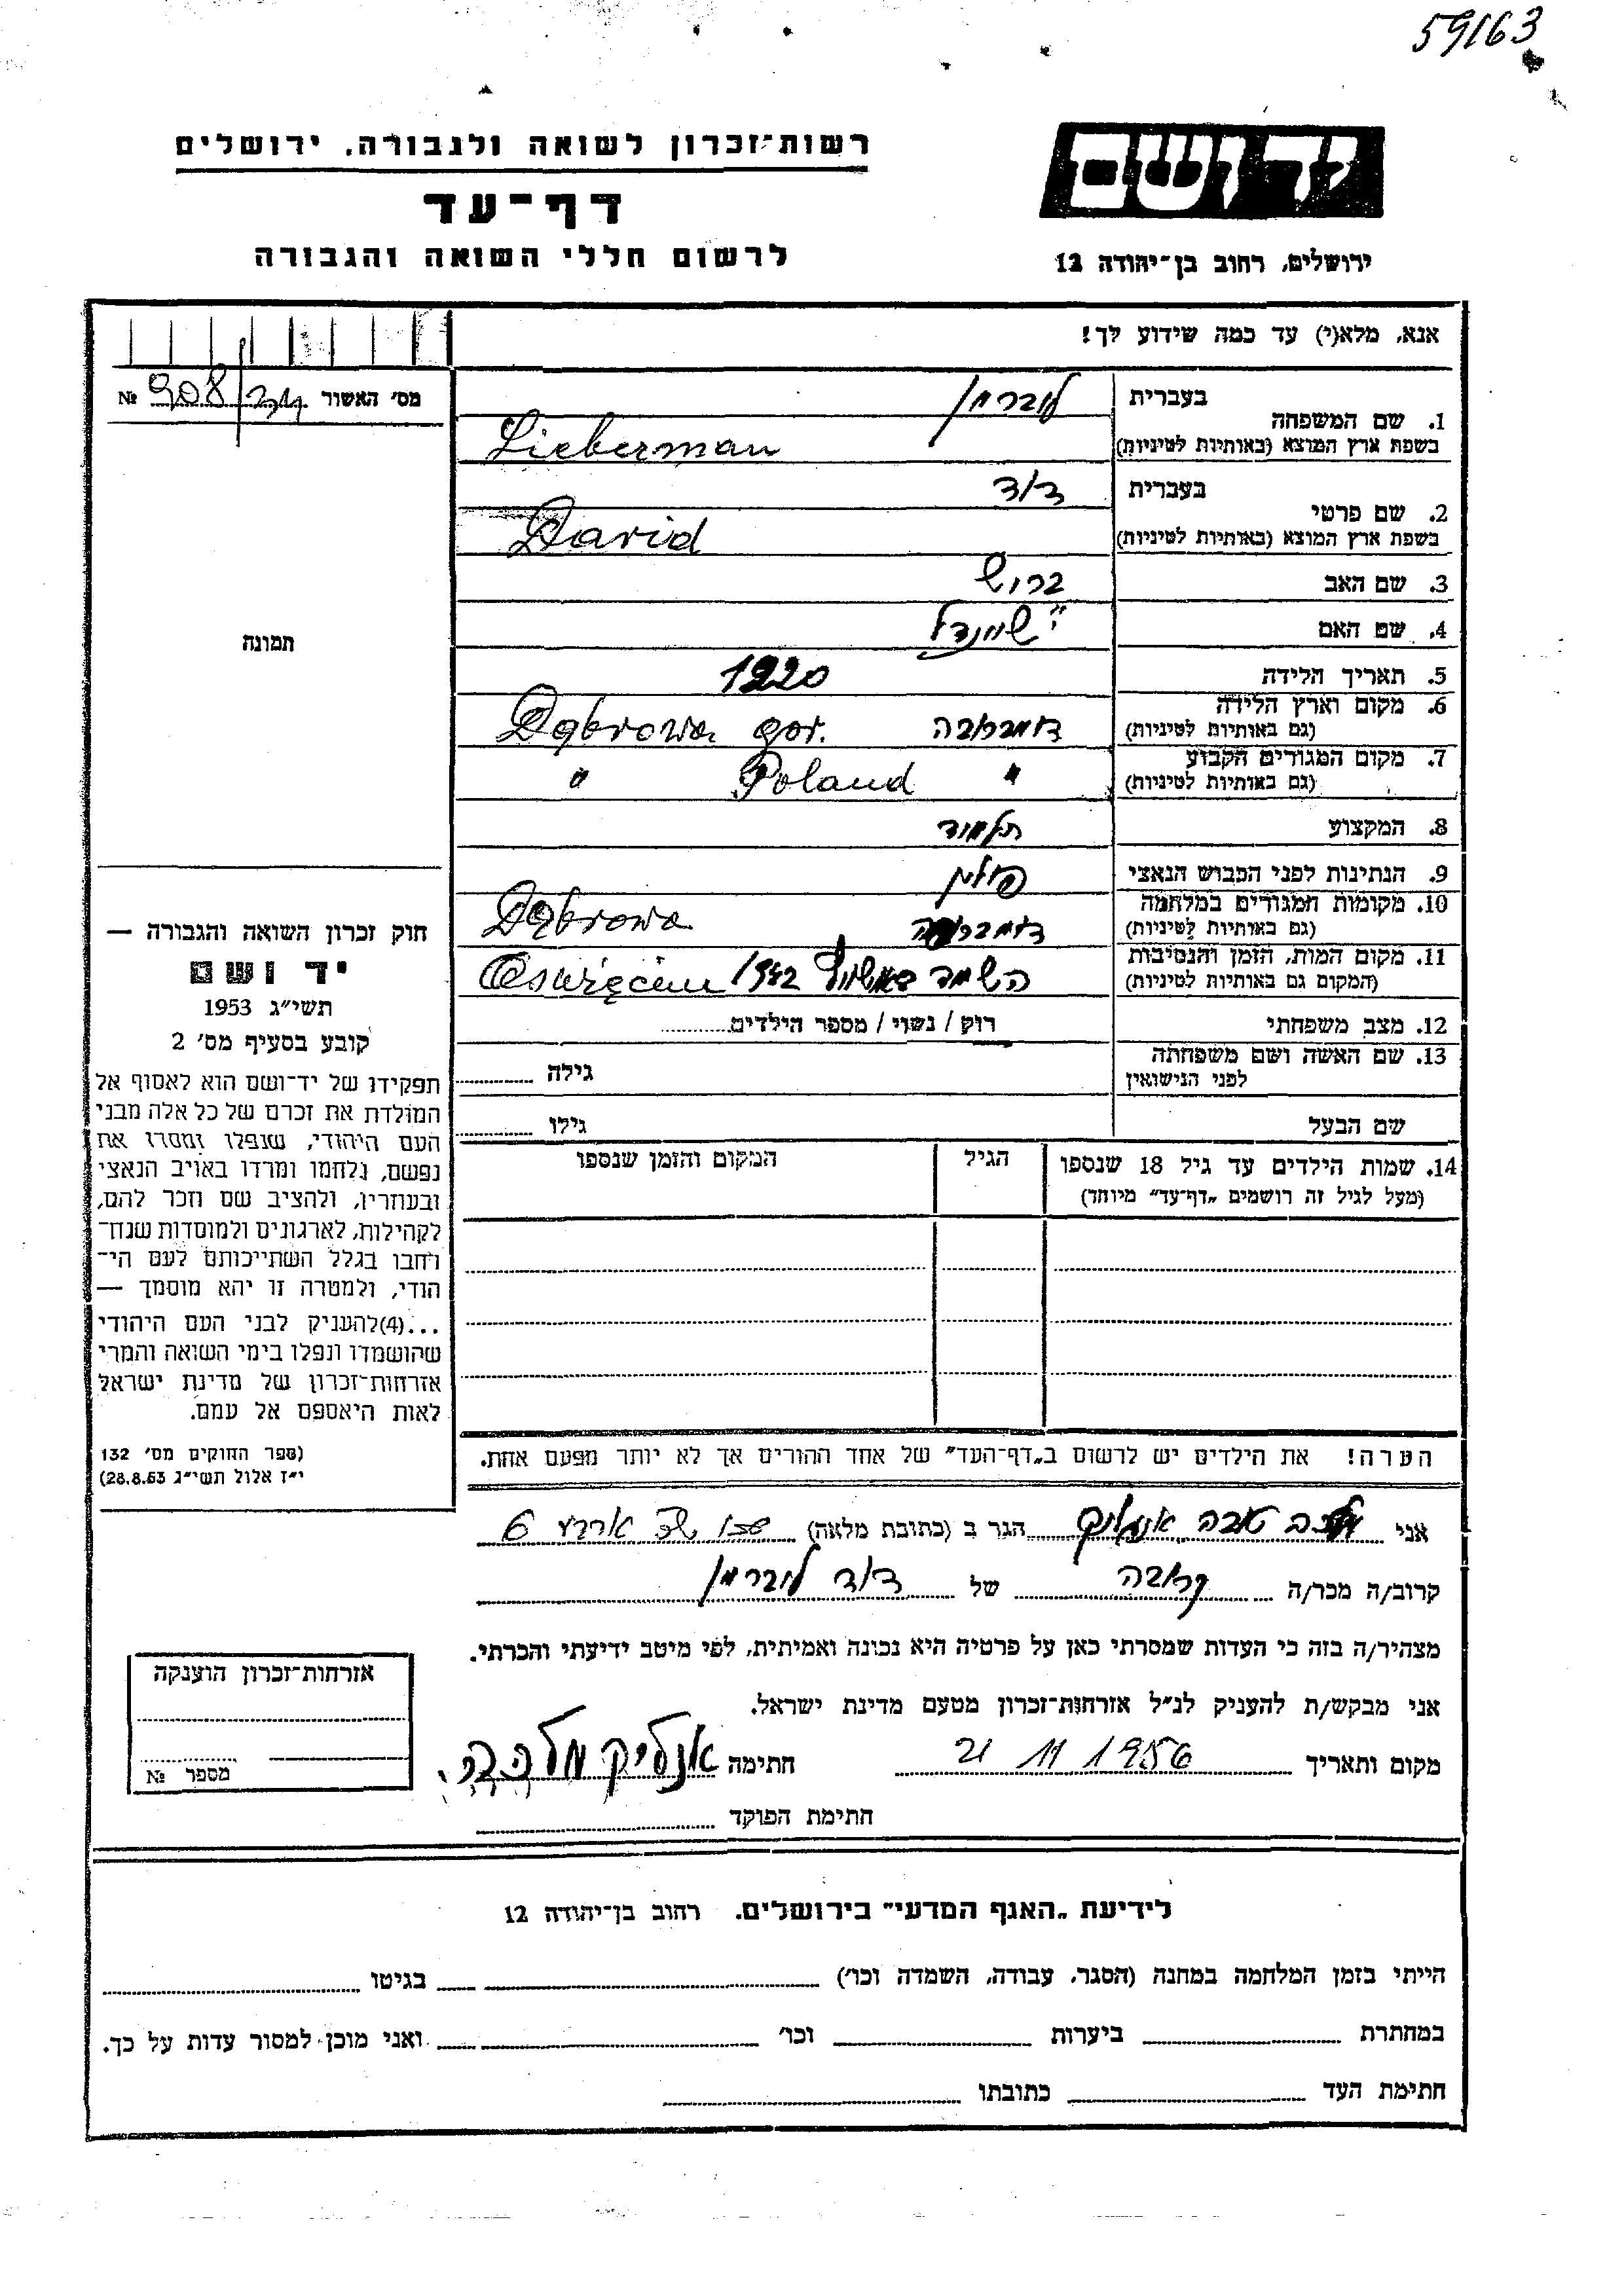 59163
רשות־זכרון לשואה ולגבורה, ירושלים
דף־עד
לרשום חללי השואה והגבורה
יד ושם
ירושלים, רחוב בן־יהודה 12
אנא, מלא(י) עד כמה שידוע לך!
מס׳ האשור № 908/
1. שם המשפחה
בעברית ליברמן
בשפת ארץ המוצא (באותיות לטיניות) Lieberman
2. שם פרטי
בעברית דוד
בשפת ארץ המוצא (באותיות לטיניות) David
3. שם האב
4. שם האם
5. תאריך הלידה 1920
6. מקום וארץ הלידה
(גם באותיות לטיניות) דומברובה Dąbrowa gor.
7. מקום המגורים הקבוע
(גם באותיות לטיניות) " Poland "
8. המקצוע תלמיד
9. הנתינות לפני הכבוש הנאצי פולין
10. מקומות המגורים במלחמה
(גם באותיות לטיניות) דומברובה Dąbrowa
11. מקום המות, הזמן והנסיבות
(המקום גם באותיות לטיניות) השמד באושויץ 1942 Oswięcim
12. מצב משפחתי רוק / נשוי / מספר הילדים
13. שם האשה ושם משפחתה
לפני הנישואין גילה
שם הבעל גילו
14. שמות הילדים עד גיל 18 שנספו הגיל המקום והזמן שנספו
(מעל לגיל זה רושמים „דף־עד״ מיוחד)
הערה! את הילדים יש לרשום ב„דף־העד״ של אחד ההורים אך לא יותר מפעם אחת.
תמונה
חוק זכרון השואה והגבורה —
יד ושם
תשי״ג 1953
קובע בסעיף מס׳ 2
תפקידו של יד־ושם הוא לאסוף אל
המולדת את זכרם של כל אלה מבני
העם היהודי, שנפלו ומסרו את
נפשם, נלחמו ומרדו באויב הנאצי
ובעוזריו, ולהציב שם וזכר להם,
לקהילות, לארגונים ולמוסדות שנח־
רחבו בגלל השתייכותם לעם הי־
הודי, ולמטרה זו יהא מוסמך —
...(4)להעניק לבני העם היהודי
שהושמדו ונפלו בימי השואה והמרי
אזרחות־זכרון של מדינת ישראל
לאות היאספם אל עמם.
(ספר החוקים מס׳ 132
י״ז אלול תשי״ג 28.8.53)
אני הגר ב (כתובת מלאה) 6
קרוב/ה מכר/ה קרובה של דוד ליברמן
מצהיר/ה בזה כי העדות שמסרתי כאן על פרטיה היא נכונה ואמיתית, לפי מיטב ידיעתי והכרתי.
אני מבקש/ת להעניק לנ״ל אזרחות־זכרון מטעם מדינת ישראל.
מקום ותאריך 21 11 1956 חתימה
חתימת הפוקד
אזרחות־זכרון הוענקה
מספר №
לידיעת „האגף המדעי״ בירושלים, רחוב בן־יהודה 12
הייתי בזמן המלחמה במחנה (הסגר, עבודה, השמדה וכו׳) בגיטו
במחתרת ביערות וכו׳ ואני מוכן למסור עדות על כך.
חתימת העד כתובתו